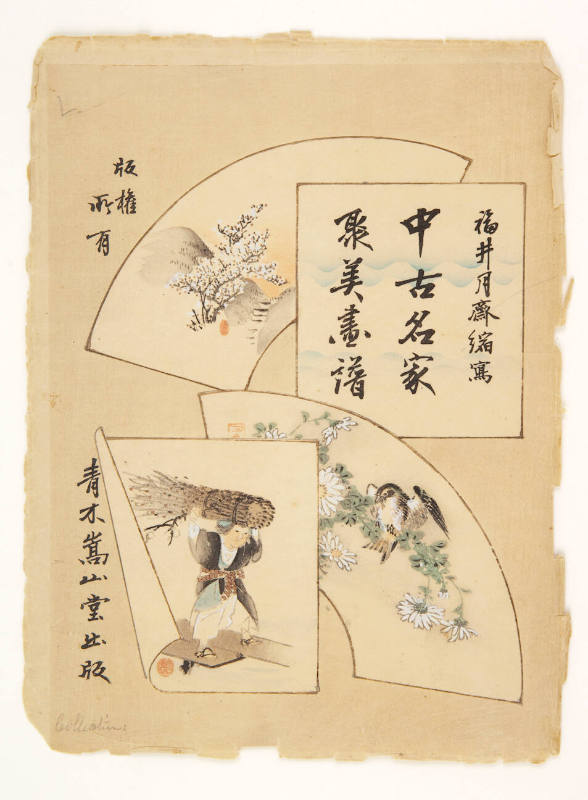 福井月齋縮寫
中古名家
聚美畫譜
版權
所有
青木嵩山堂出版
Collection